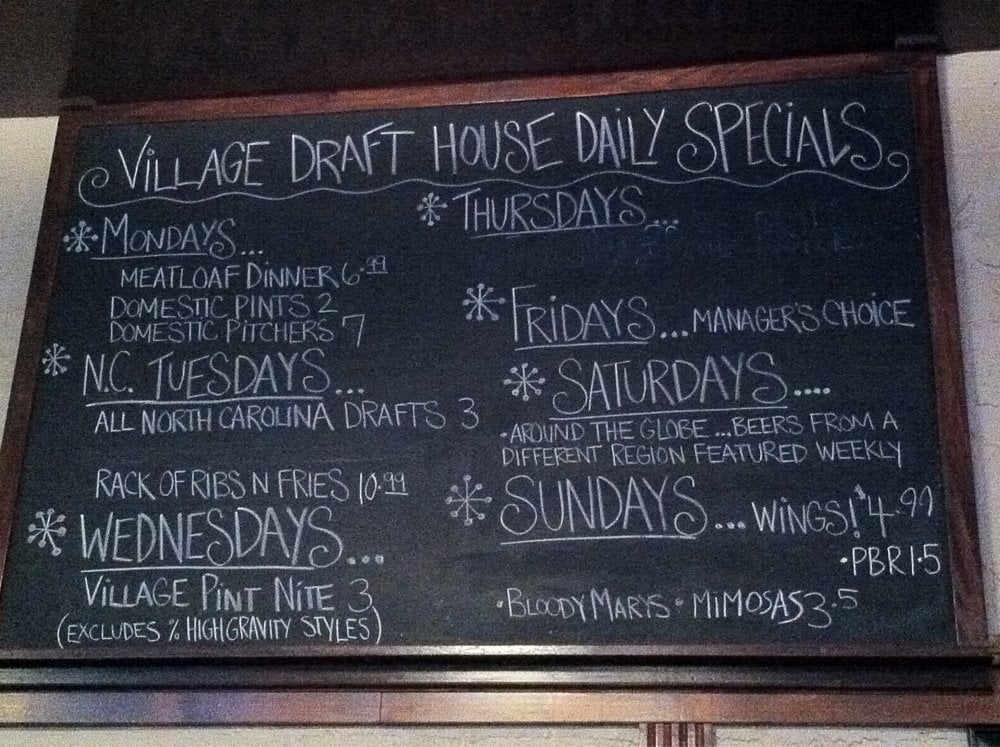 VILLAGE DRAFT HOUSE DAILY SPECIALS
MONDAYS...
MEATLOAF DINNER 6.99
DOMESTIC PINTS 2
DOMESTIC PITCHERS 7
N.C. TUESDAYS...
ALL NORTH CAROLINA DRAFTS 3
RACK OF RIBS N FRIES 10.99
WEDNESDAYS...
VILLAGE PINT NITE 3
(EXCLUDES % HIGH GRAVITY STYLES)
THURSDAYS...
FRIDAYS... MANAGER'S CHOICE
SATURDAYS....
•AROUND THE GLOBE...BEERS FROM A
DIFFERENT REGION FEATURED WEEKLY
SUNDAYS... WINGS! $4.99
•PBR 1.5
•BLOODY MARYS • MIMOSAS 3.5